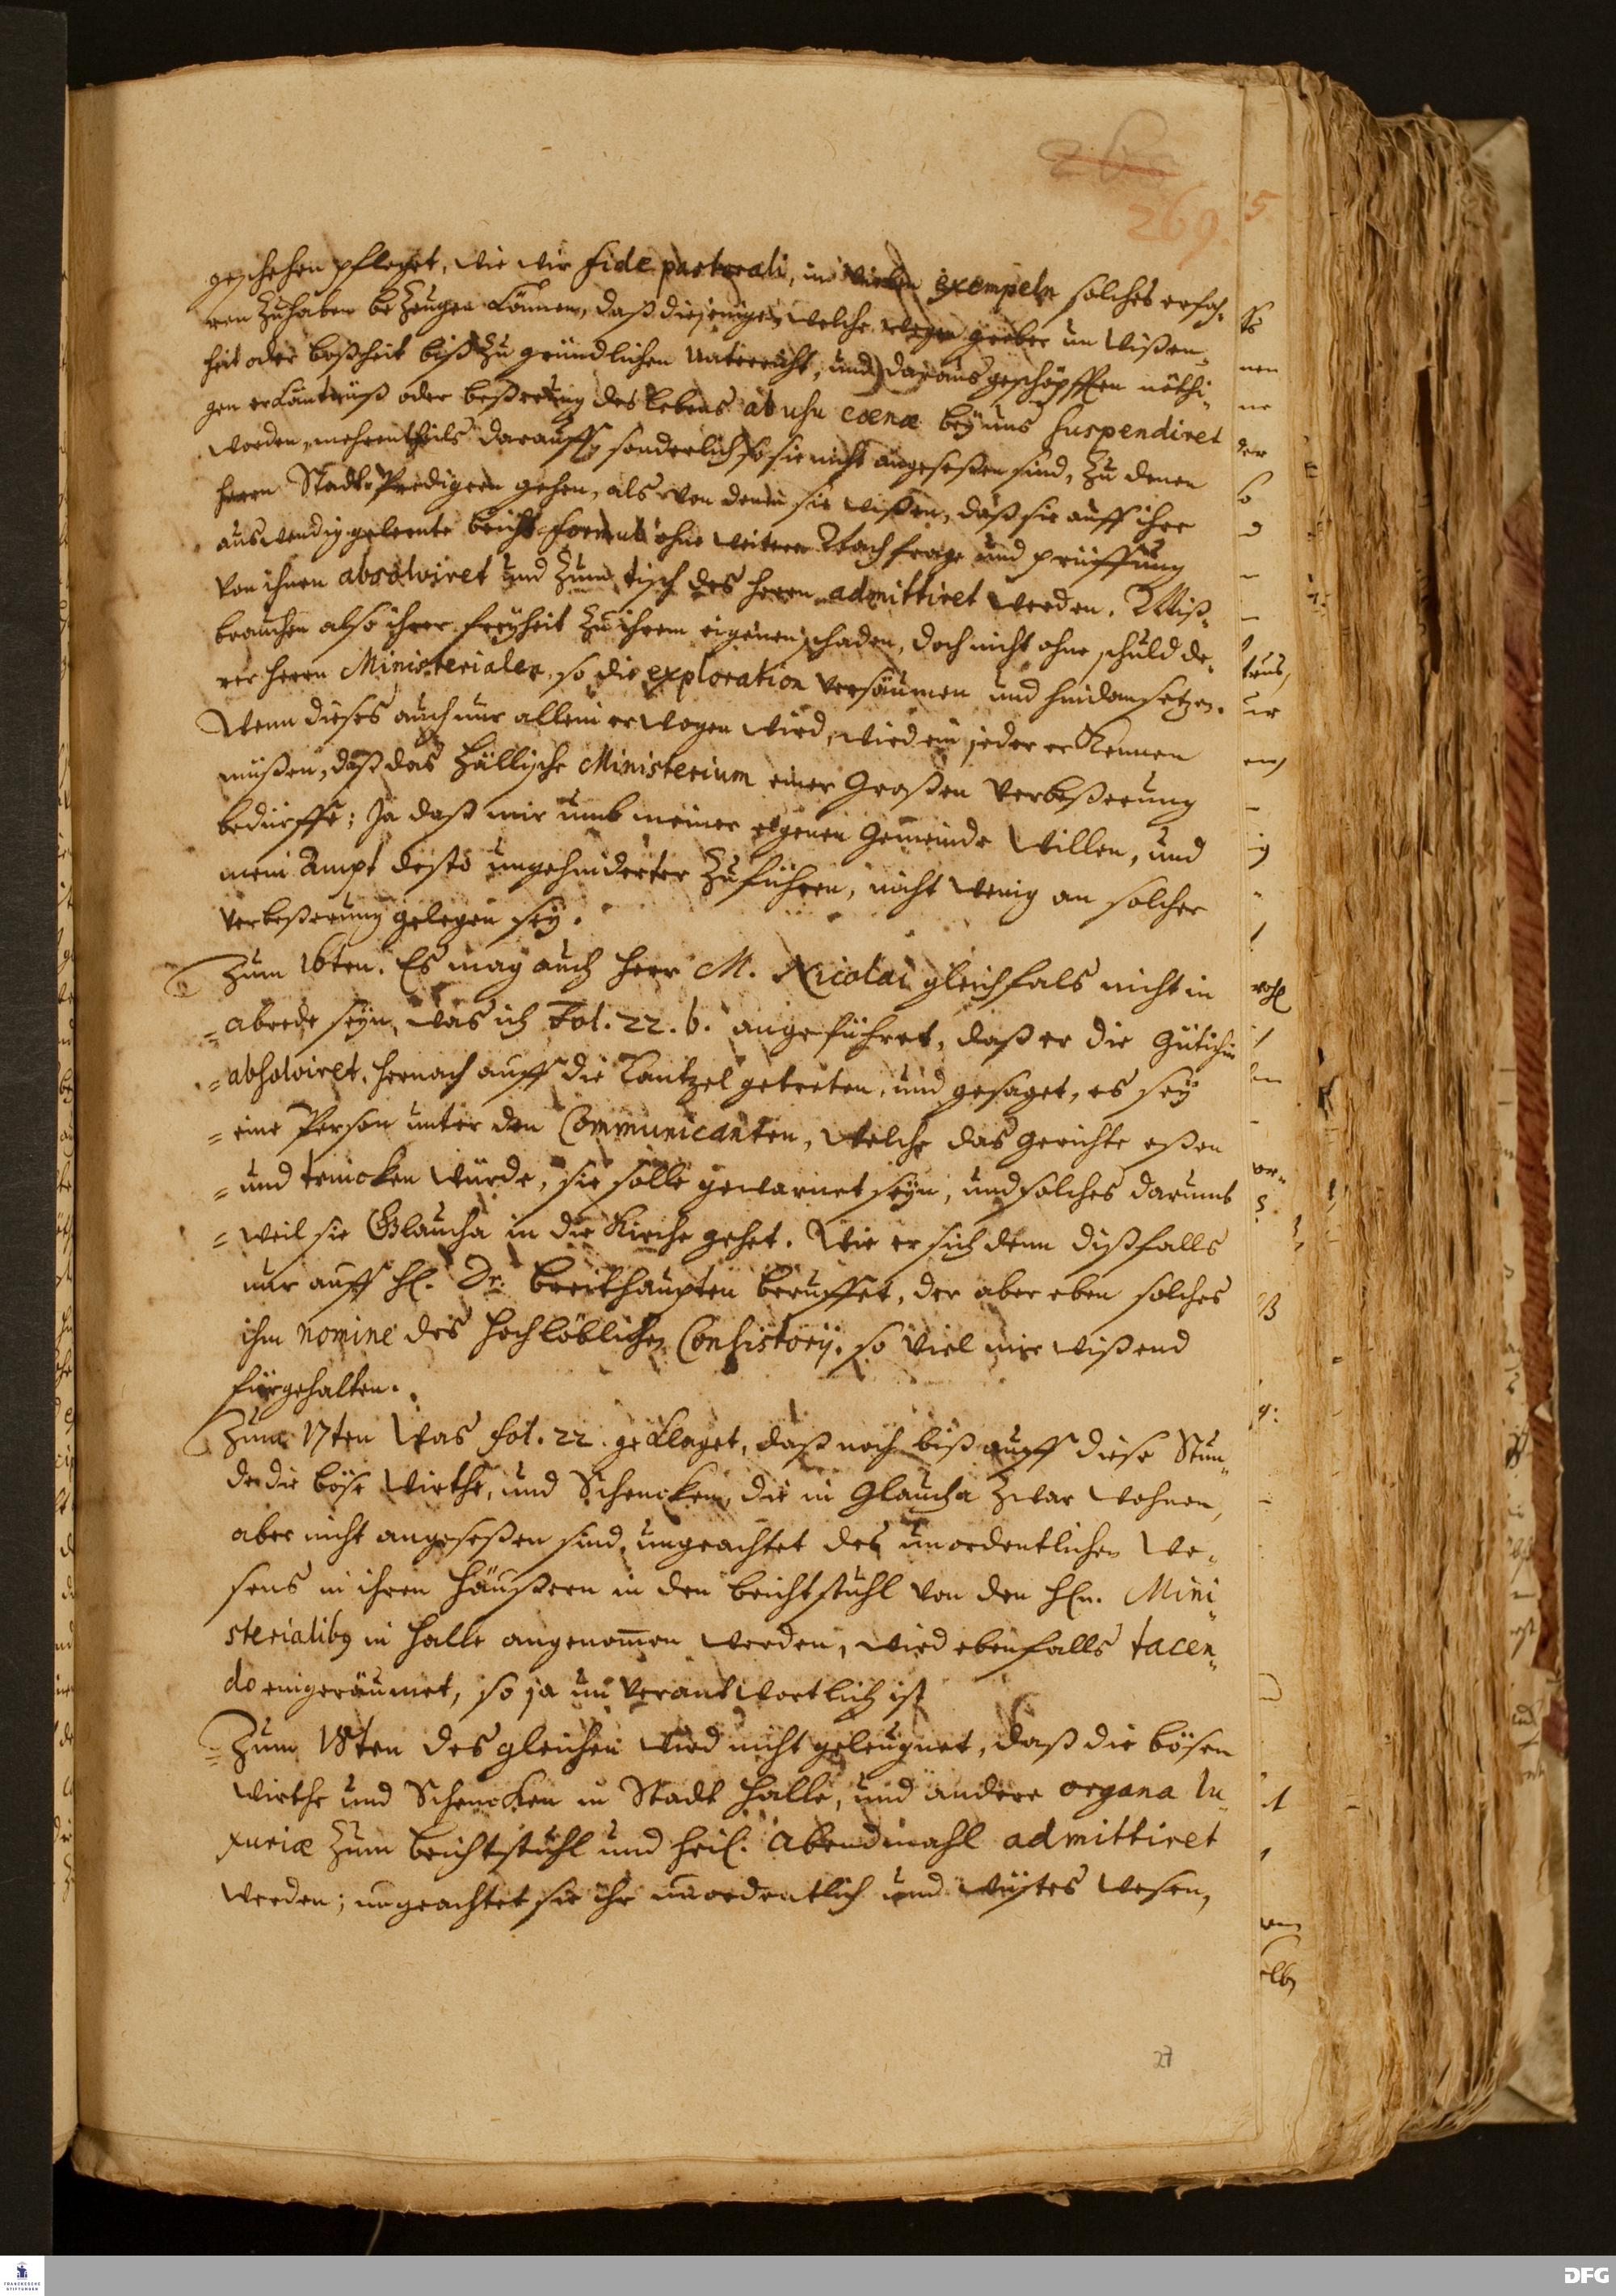 269.
geschehen pfleget, wie wir fide pastorali, in vielen exempeln solches erfah-
ren zuhaben bezeugen können, daß diejenigen welche wegen grober unwißen-
heit oder boßheit biß zu gründlichen Unterricht, und daraus geschöpfften nöthi-
gen erkäntnüß oder beßerung des lebens ab usu coenæ bey uns suspendiret
worden, mehrentheils darauff, sonderlich so sie nicht angeseßen sind, zu denen
herrn Stadt-Predigern gehen, als von denen sie wißen, daß sie auff ihre
auswendig gelernte beicht-formul ohne weitere Nachfrage und prüffung
von ihnen absolviret und zum tisch des herrn admittiret werden. Miß-
brauchen also ihrer freyheit zu ihrem eigenen schaden, doch nicht ohne schuld de-
rer herrn Ministerialen, so die exploration versäumen und hindansetzen.
Wenn dieses auch nur allein erwogen wird, wird ein jeder erkennen
müßen, daß das Hällische Ministerium einer Großen Verbeßerung
bedürffe; Ja daß mir umb meiner eigenen Gemeinde Willen, und
mein Ampt desto ungehinderter zuführen, nicht wenig an solcher
Verbeßerung gelegen sey.
Zum 16ten. Es mag auch herr M. Nicolai gleichfals nicht in
= abrede seyn, was ich Fol. 22. b. angeführet, daß er die Gütichin
= absolviret, hernach auff die Cantzel getreten, und gesaget, es sey
= eine Person unter den Communicanten, welche das gerichte eßen
= und trincken würde, sie solle gewarnet seyn, und solches darumb
= weil sie Glaucha in die Kirche gehet. Wie er sich denn dißfalls
nur auff H. Dr. Breithaupten beruffet, der aber eben solches
ihm nomine des hochlöblichen Consistorij, so viel mir wißend
fürgehalten.
Zum 17ten Was fol. 22. geklaget, daß noch biß auff diese Stun-
de die böse Wirthe, und Schencken, die in Glaucha zwar wohnen,
aber nicht angeseßen sind, ungeachtet des unordentlichen We-
sens in ihren häußern in den beichtstuhl von den Hln. Mini-
sterialibg in Halle angenom̄en werden, wird ebenfalls tacen-
do eingeräumet, so ja unverantwortlich ist
= Zum 18ten desgleichen wird nicht geleugnet, daß die bösen
Wirthe und Schencken in Stadt Halle, und andere organa lu-
xuriæ zum beichtstuhl und heil. Abendmahl admittiret
werden; ungeachtet sie ihr unordentlich und wüstes wesen,
27
FRANCKESCHE
STIFTUNGEN
DFG